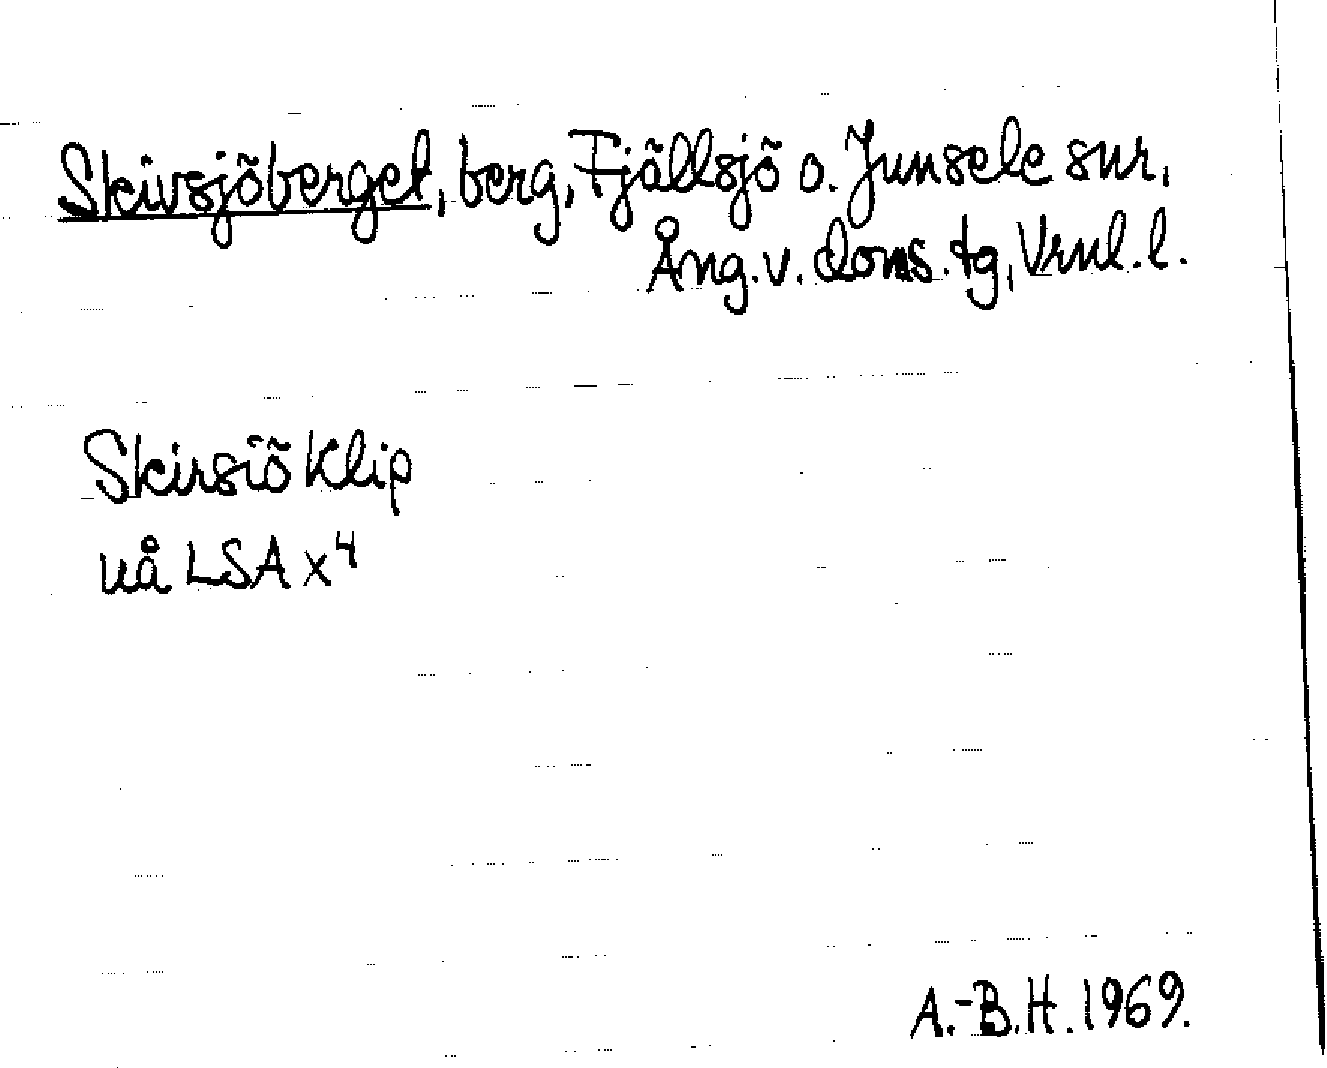 Skivsjöberget, berg, Fjällsjö o. Junsele snr,
Ång. v. doms. tg, Vrnl. l.
Skirsiö Klip
uå LSA x⁴
A.-B.H. 1969.